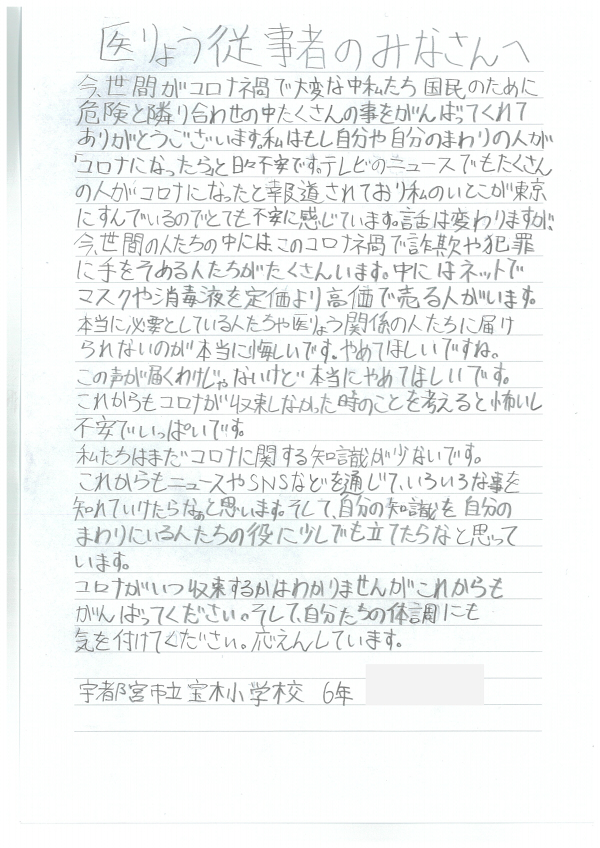 医りょう従事者のみなさんへ
今、世間がコロナ禍で大変な中私たち国民のために
危険と隣り合わせの中たくさんの事をがんばってくれて
ありがとうございます。私はもし自分や自分のまわりの人が
「コロナになったら」と日々不安です。テレビのニュースでもたくさん
の人がコロナになったと報道されており私のいとこが東京
にすんでいるのでとても不安に感じています。話は変わりますが、
今、世間の人たちの中には、このコロナ禍で詐欺や犯罪
に手をそめる人たちがたくさんいます。中にはネットで
マスクや消毒液を定価より高価で売る人がいます。
本当に必要としている人たちや医りょう関係の人たちに届け
られないのが本当に悔しいです。やめてほしいですね。
この声が届くわけじゃないけど本当にやめてほしいです。
これからもコロナが収束しなかった時のことを考えると怖いし
不安でいっぱいです。
私たちはまだコロナに関する知識が少ないです。
これからもニュースやSNSなどを通じて、いろいろな事を
知れていけたらなぁと思います。そして、自分の知識を自分の
まわりにいる人たちの役に少しでも立てたらなと思って
います。
コロナがいつ収束するかはわかりませんがこれからも
がんばってください。そして、自分たちの体調にも
気を付けてください。応えんしています。
宇都宮市立宝木小学校 6年